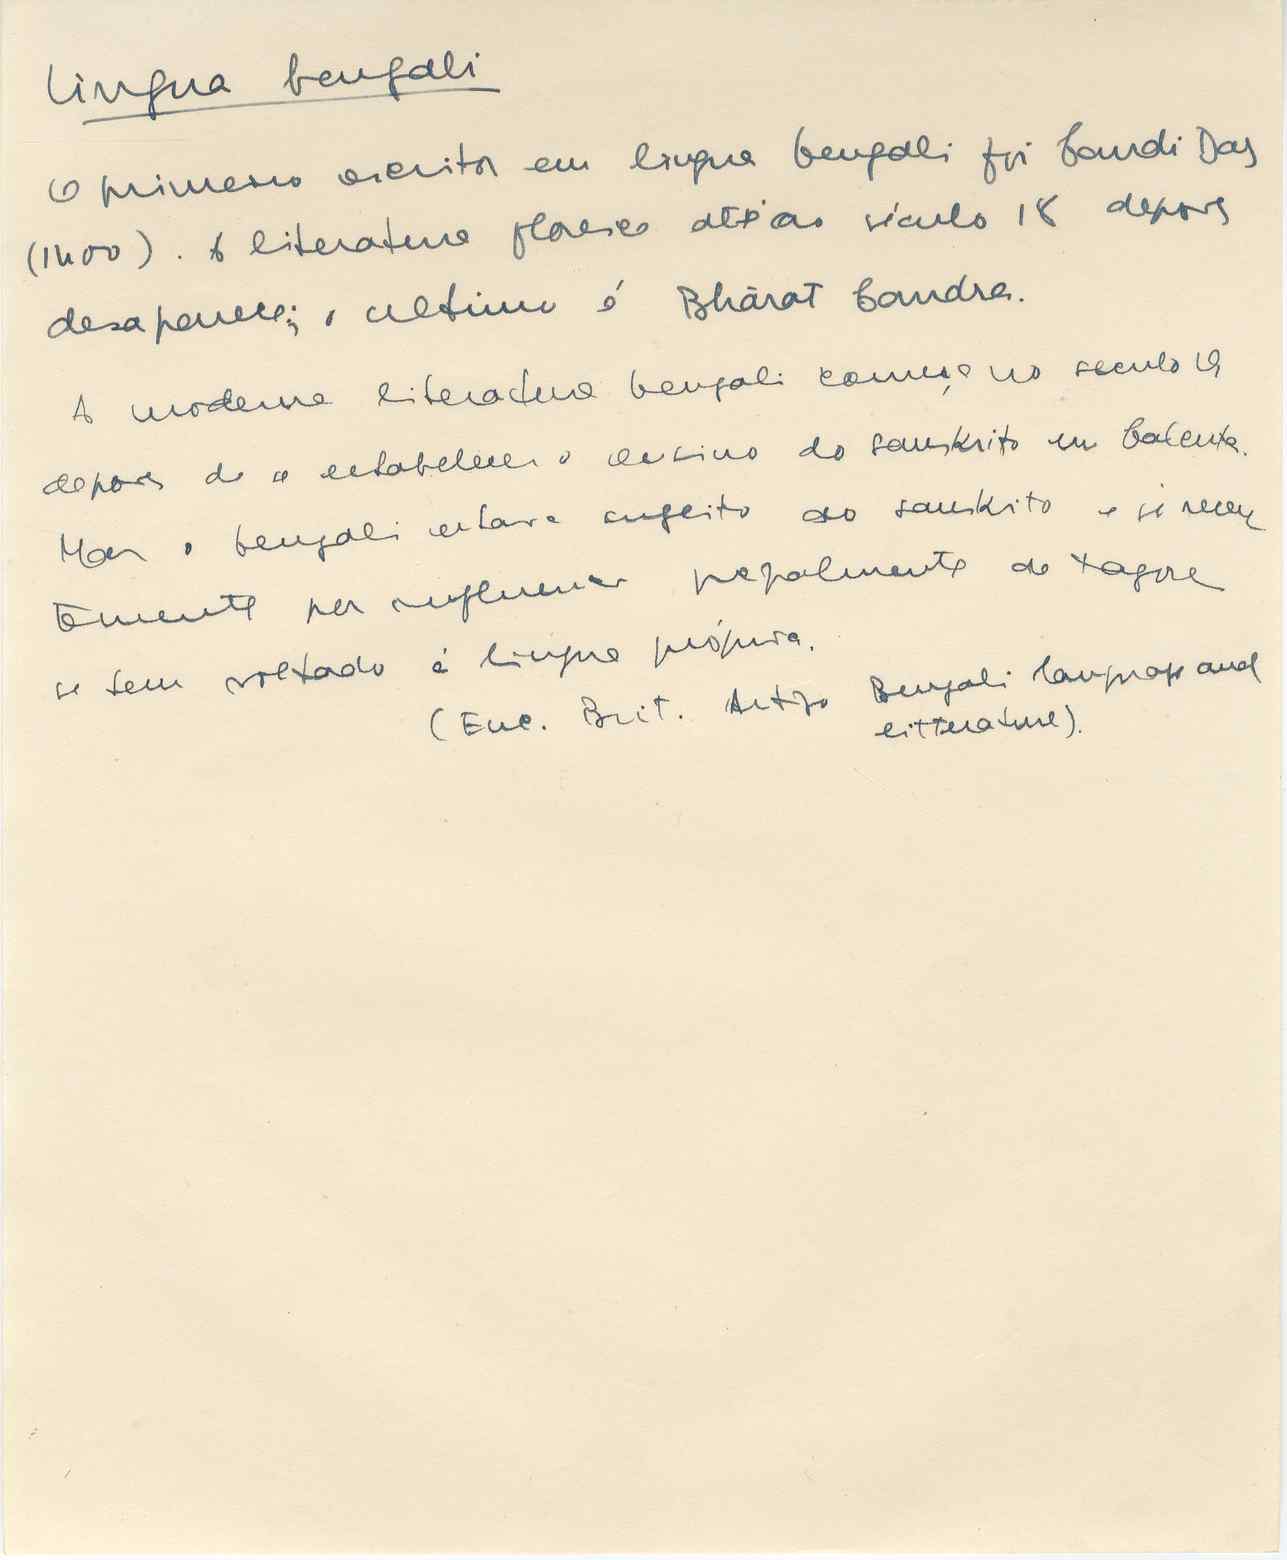 Lingua bengali
O primeiro escritor em lingua bengali foi Candi Das
(1400). A literatura floresce até ao século 18 depois
desaparece; o ultimo é Bhārat Candra.
A moderna literatura bengali começa no seculo 19
depois de se estabelecer o ensino do sanskrito em Calcuta.
Mas o bengali estava sugeito ao sanskrito e só recen
temente por influencia pcipalmente de Tagore
se tem voltado á lingua própria.
(Enc. Brit. Artigo Bengali language and
litterature).